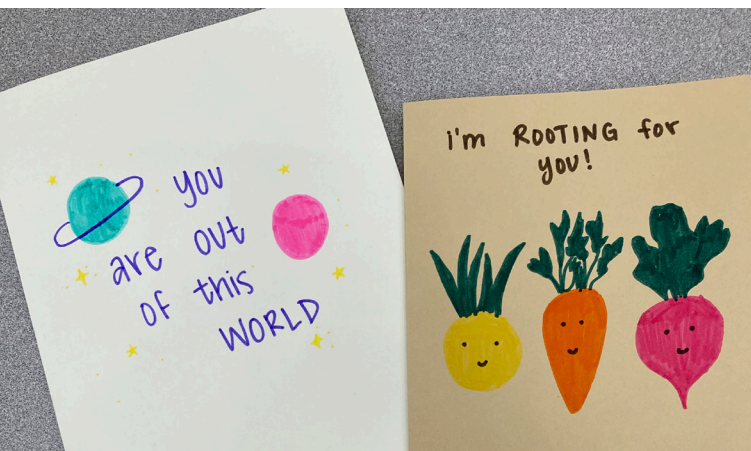 you
are out
of this
WORLD
i'm ROOTING for
you!